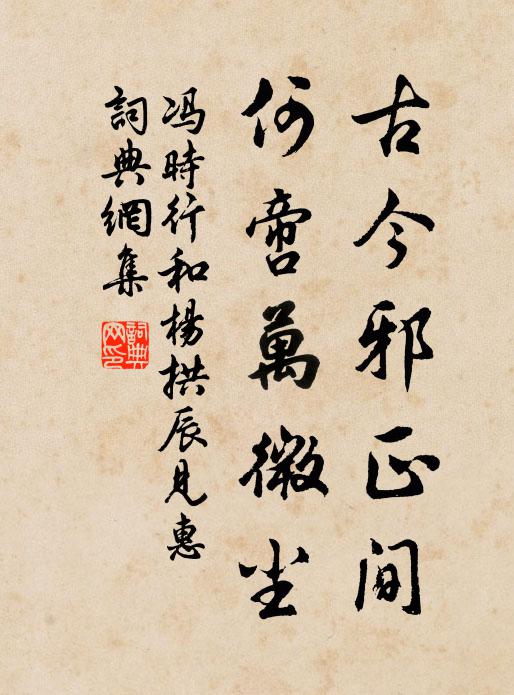 古今邪正间
何啻萬微尘
冯時行和楊拱辰見惠
詞典網集
詞典网印